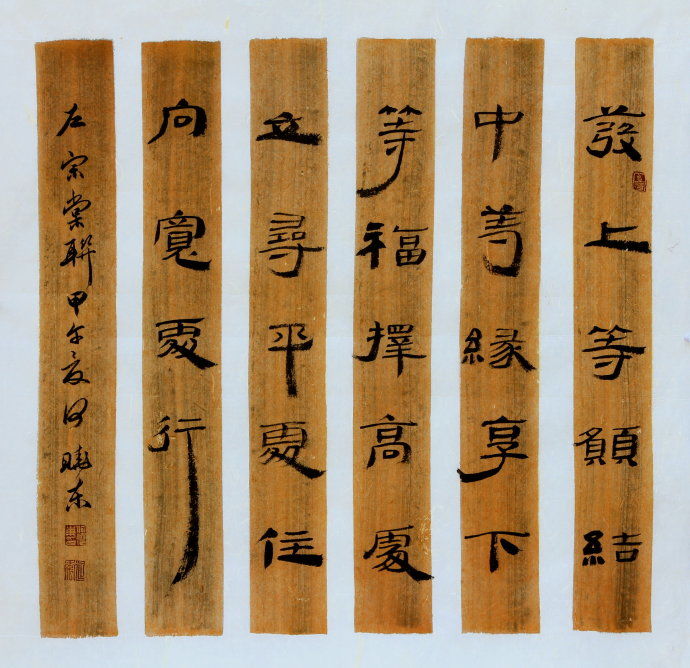 發上等願結
中等緣享下
等福擇高處
立尋平處住
向寬處行
左宗棠聯甲午夏何曉东